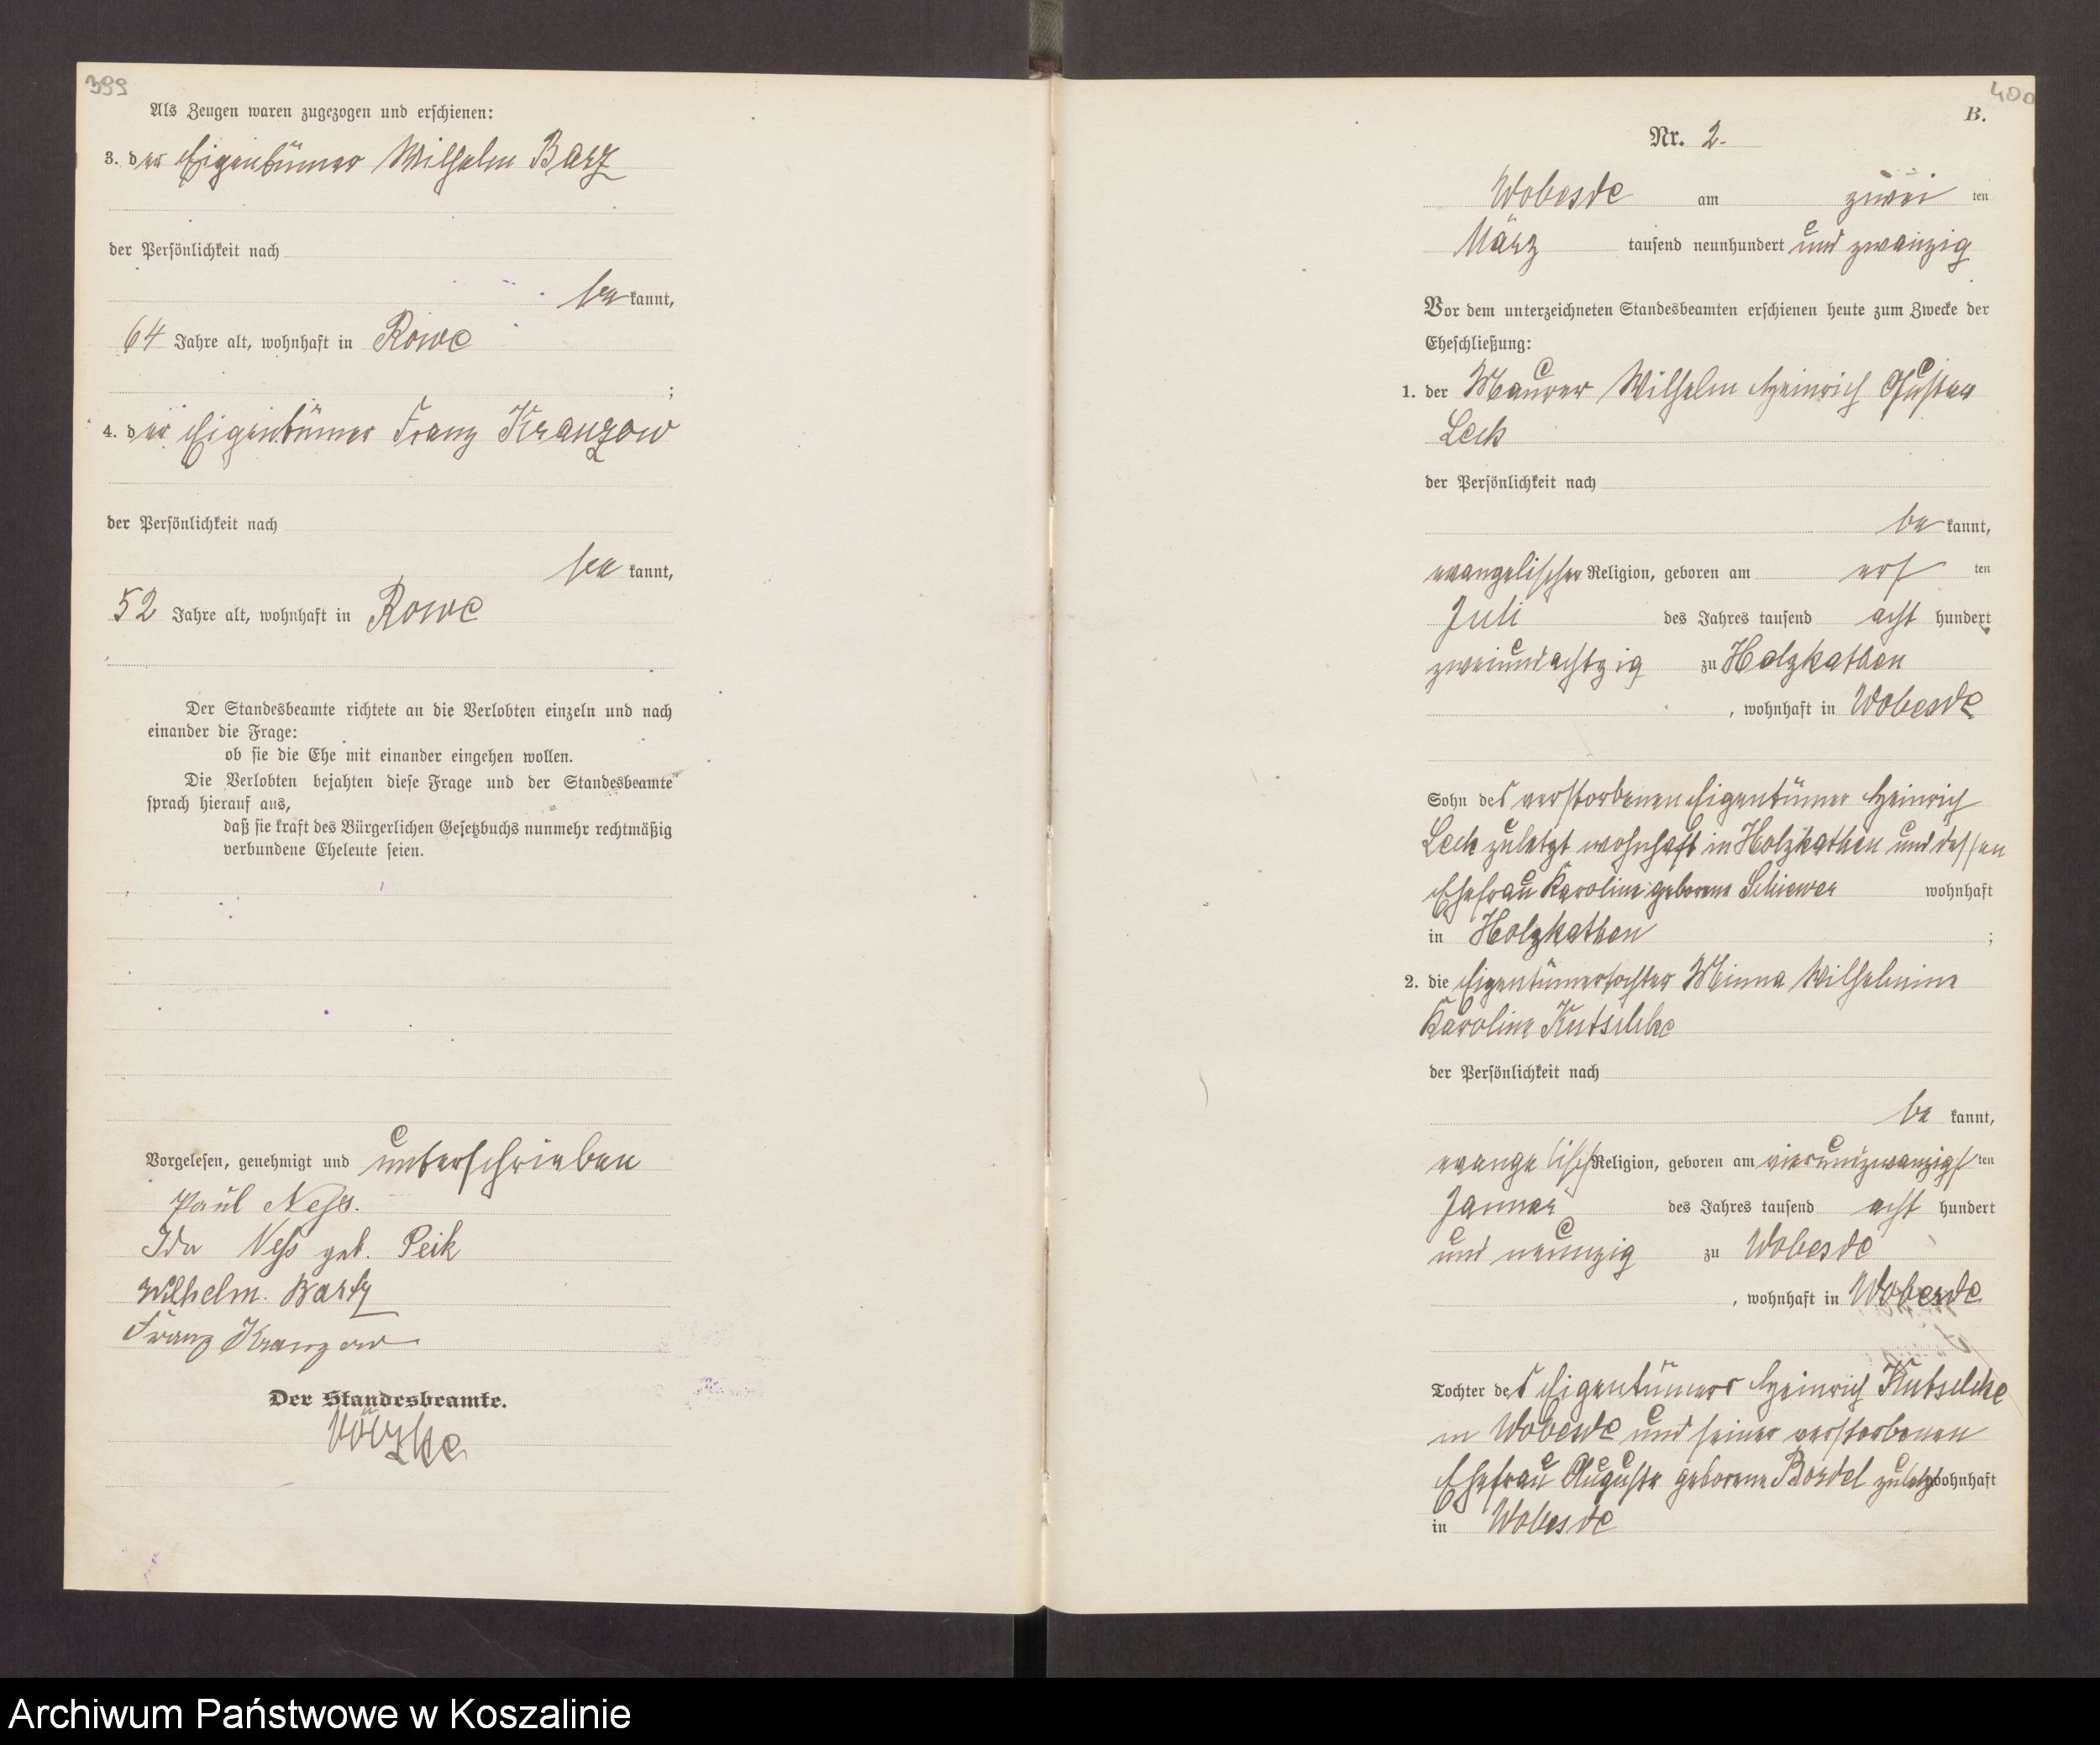 399
Als Zeugen waren zugezogen und erschienen:
3. der Eigentümer Wilhelm Barz
der Persönlichkeit nach
be kannt,
64 Jahre alt, wohnhaft in Rowe
;
4. der Eigentümer Franz Kranzow
der Persönlichkeit nach
be kannt,
52 Jahre alt, wohnhaft in Rowe
Der Standesbeamte richtete an die Verlobten einzeln und nach
einander die Frage:
ob sie die Ehe mit einander eingehen wollen.
Die Verlobten bejahten diese Frage und der Standesbeamte
sprach hierauf aus,
daß sie kraft des Bürgerlichen Gesetzbuchs nunmehr rechtmäßig
verbundene Eheleute seien.
Vorgelesen, genehmigt und unterschrieben
Paul Ness.
Ida Ness geb. Peik
Wilhelm. Bartz
Franz Kranzow
Der Standesbeamte.
400
B.
Nr. 2.
Wobesde am zwei ten
März tausend neunhundert und zwanzig
Vor dem unterzeichneten Standesbeamten erschienen heute zum Zwecke der
Eheschließung:
1. der Maurer Wilhelm Heinrich Gustav
Leck
der Persönlichkeit nach
be kannt,
evangelischer Religion, geboren am ers ten
Juli des Jahres tausend acht hundert
zweiundachtzig zu Holzkathen
, wohnhaft in Wobesde
Sohn des verstorbenen Eigentümer Heinrich
Leck zuletzt wohnhaft in Holzkathen und dessen
Ehefrau Karoline geborene Schiewer wohnhaft
in Holzkathen ;
2. die Eigentümertochter Minna Wilhelmine
Karoline Kutschke
der Persönlichkeit nach
be kannt,
evangelisch Religion, geboren am vierundzwanzigs ten
Januar des Jahres tausend acht hundert
und neunzig zu Wobesde
, wohnhaft in Wobesde
Tochter des Eigentümers Heinrich Kutschke
in Wobesde und seiner verstorbenen
Ehefrau Auguste geborene Bordel zuletzt wohnhaft
in Wobesde
Archiwum Państwowe w Koszalinie